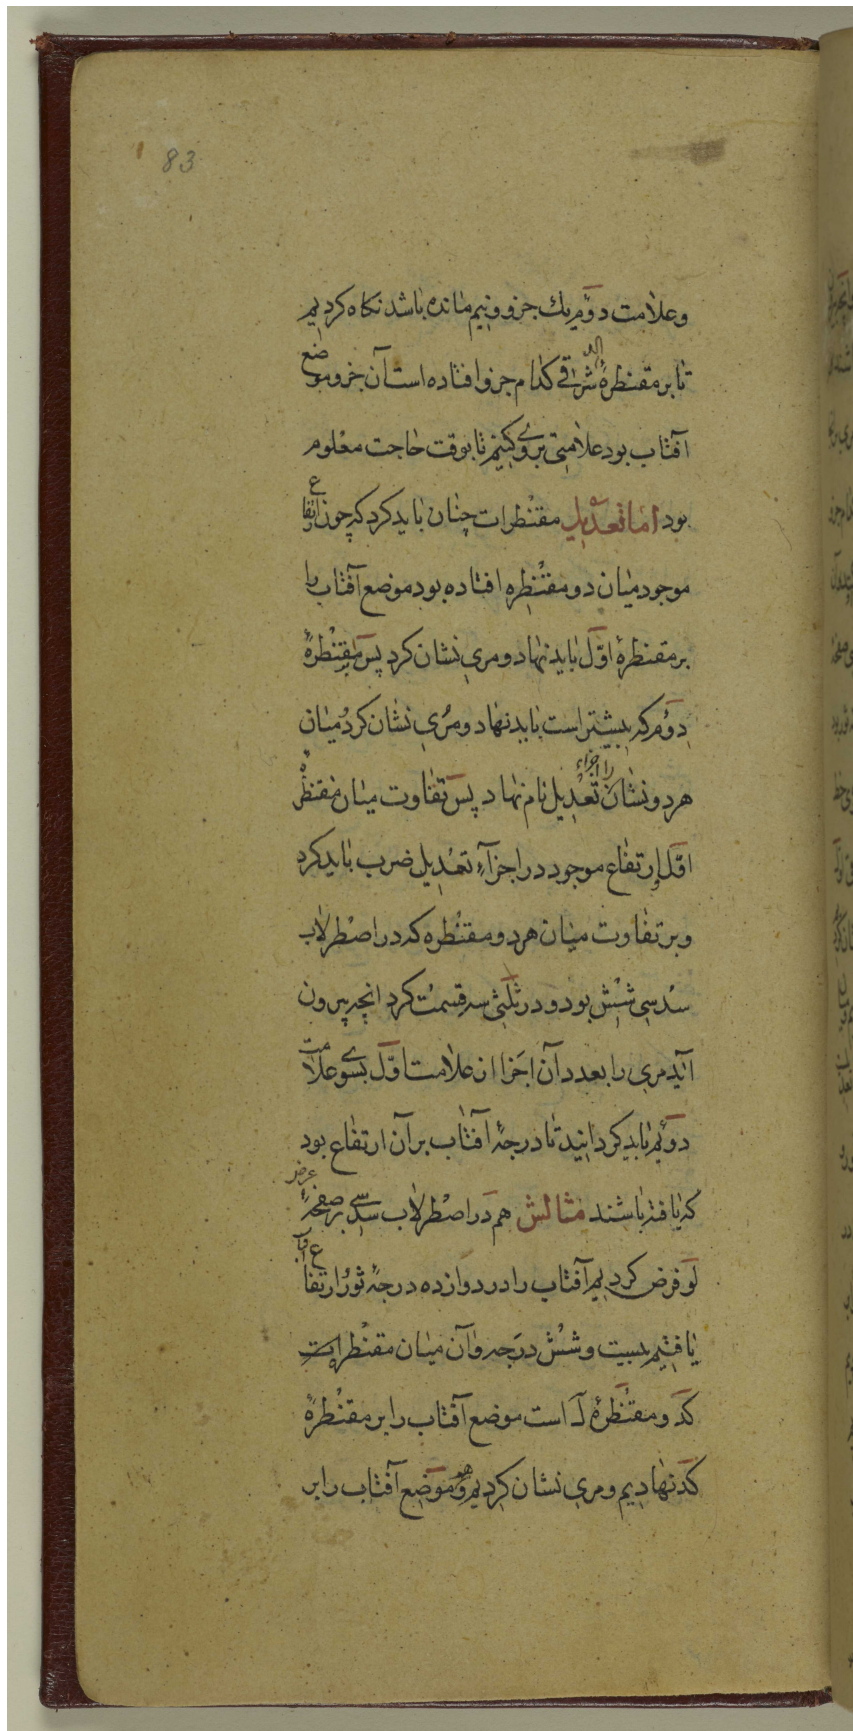 83
وعلامت دوّم یك جزو ونیم مانده باشد نكاه كردیم
تا بر مقنطرهٔ شراقی كدام جزو افتاده است آن جزو موضع
آفتاب بود علامتی بروی كنیم تا بوقت حاجت معلوم
بود اما تعدیل مقنطرات چنان باید كرد كه چون ارتفاع
موجود میان دو مقنطره افتاده بود موضع آفتاب را
بر مقنطرهٔ اوّل باید نهاد و مری نشان كرد پس بمقنطرهٔ
دوّم كه بیشتر است باید نهاد و مری نشان كرد میان
هر دو نشان را اجزاء تعدیل نام نهاد پس تفاوت میان مقنطرهٔ
اوّل و ارتفاع موجود در اجزآء تعدیل ضرب باید كرد
و بر تفاوت میان هر دو مقنطره كه در اصطرلاب
سدسی شش بود و در ثلثی سه قسمت كرد انچه بیرون
آید مری را بعدد آن اجزا از علامت اوّل بسوی علامت
دوّم باید كردانید تا درجهٔ آفتاب بر آن ارتفاع بود
كه یافته باشند مثالش هم در اصطرلاب سدسی بر صفحهٔ عرض
لو فرض كردیم آفتاب را در دوازده درجهٔ ثور ارتفاع
یافتیم بیست و شش درجه وآن میان مقنطرات
كد و مقنطرهٔ ل است موضع آفتاب را بر مقنطرهٔ
كد نهادیم و مری نشان كردیم و موضع آفتاب را بر